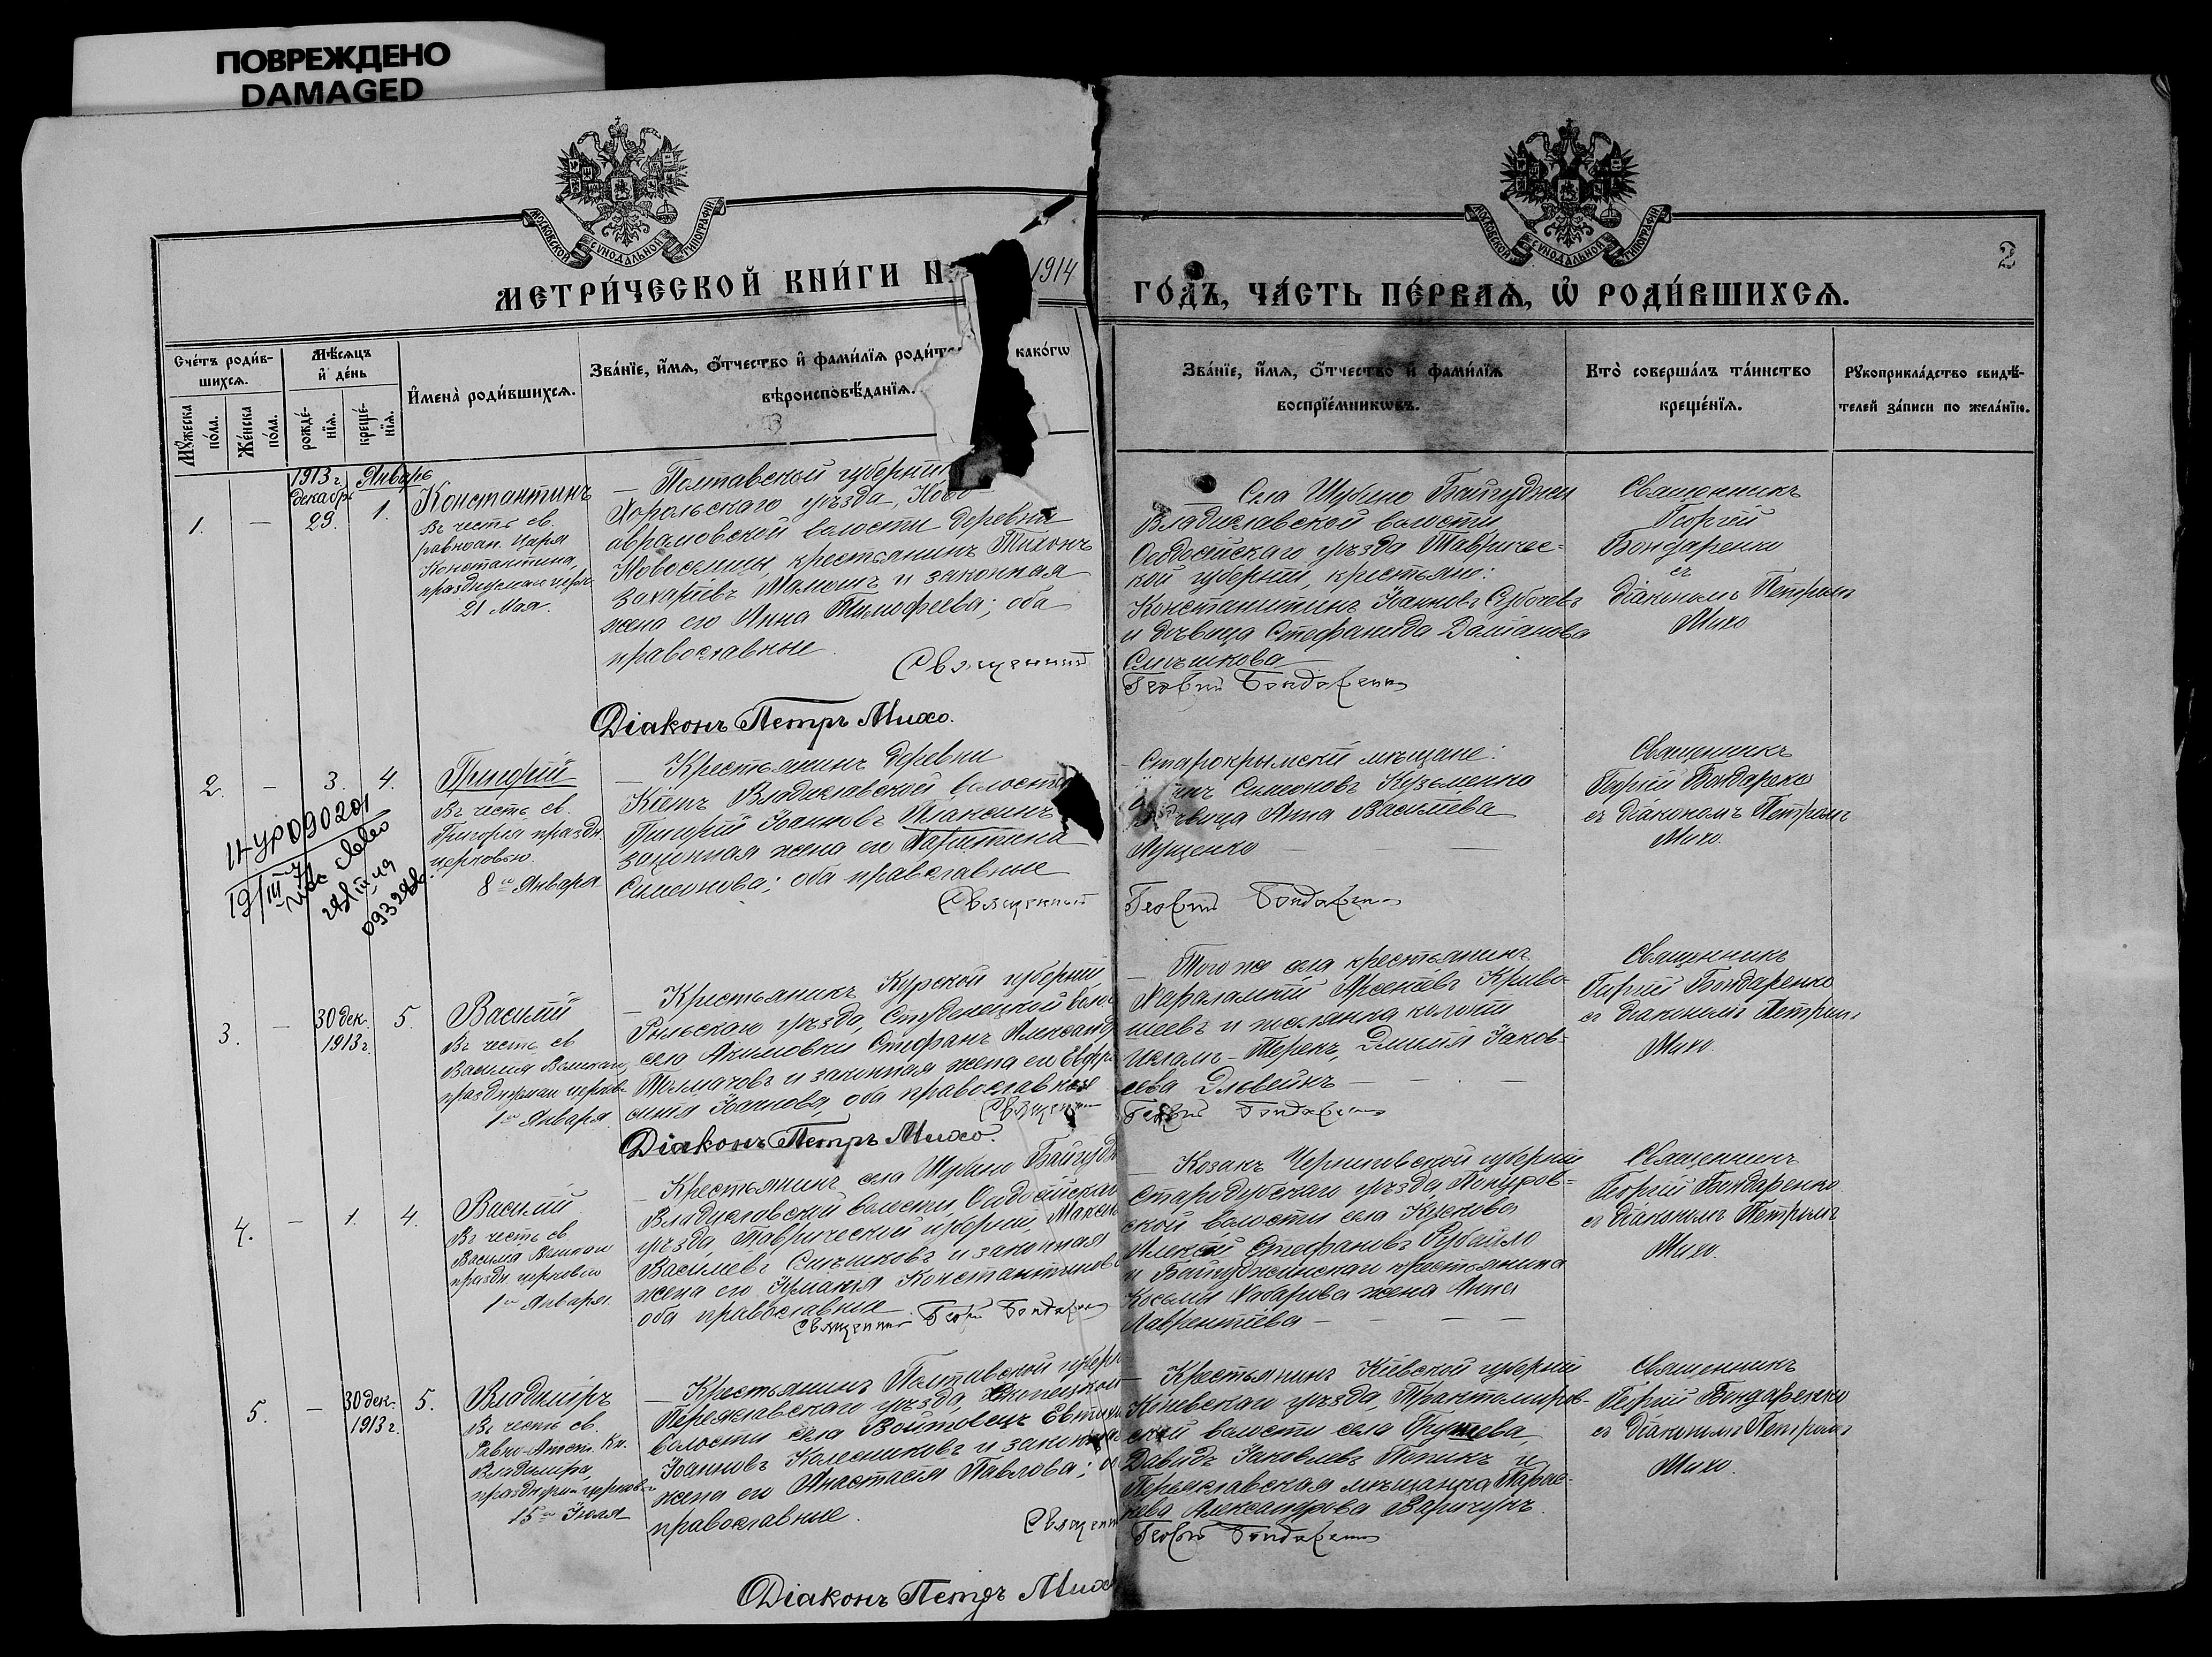 ПОВРЕЖДЕНО
DAMAGED
МОСКОВСКОЙ СУНОДАЛЬНОЙ ТИПОГРАФІИ
МОСКОВСКОЙ СУНОДАЛЬНОЙ ТИПОГРАФІИ
2
МЕТРИ́ЧЕСКОЙ КНИ́ГИ Н 1914
ГО́ДЪ, ЧА́СТЬ ПЕ́РВАЯ, Ѽ РОДИ́ВШИХСЯ.
Сче́тъ роди́в-
шихся.
Мѣ́сяцъ
и҆ де́нь
И҆мена̀ роди́вшихся.
Зва́нїе, и҆́мя, ѻ҆́тчество и҆ фами́лїя роди́те како́гѡ
вѣроисповѣ́данїя.
Мꙋ́жеска
по́ла.
Же́нска
по́ла.
рожде́-
нїя.
креще́-
нїя.
Зва́нїе, и҆́мя, ѻ҆́тчество и҆ фами́лїя
воспрїе́мникѡвъ.
Кто̀ соверша́лъ та́инство
креще́нїя.
Рꙋкоприкла́дство свидѣ́-
телей за́писи по жела́нїю.
1913 г.
декабр.
29.
Январь
1.
1.
—
Константинъ
Въ честь св.
равноап. Царя
Константина,
21 Мая.
— Полтавской губерніи
Хорольскаго уѣзда, Ново-
аврамовской волости деревни
Новоселицы крестьянинъ Тихонъ
Захаріевъ Мамонъ и законная
жена его Анна Тимофеева; оба
православные.
Священникъ
Діаконъ Петръ Михо.
— Села Шубино Байгуджи
Владиславской волости
Ѳеодосійскаго уѣзда Тавричес-
кой губерніи, крестьяне:
Константинъ Іоанновъ
и дѣвица Стефанида Даміанова
Смѣшкова
Георгій Бондаренко
Священникъ
Георгій
Бондаренко
съ
діакономъ Петромъ
Михо
2.
—
3.
4.
Григорій
Въ честь св.
Григорія праздн.
церковью.
8го Января
— Крестьянинъ деревни
Кіетъ Владиславской волости
Григорій Іоанновъ Плаксинъ
законная жена его Харитина
Симеонова; оба православные
Священникъ
— Старокрымскій мѣщане:
Симеоновъ Кузьменко
дѣвица Анна Васильева
Луценко —
Георгій Бондаренко
Священникъ
Георгій Бондаренко
съ діакономъ Петромъ
Михо.
3.
—
30 дек.
1913 г.
5.
Василій
Въ честь св
Василія Великаго,
1го Января.
— Крестьянинъ Курской губерніи
Рыльскаго уѣзда, Студенецкой воло
села Акимовки Стефанъ Александ
Толмачовъ и законная жена его Евфро
синія Іоаннова, оба православные
Священникъ
Діаконъ Петръ Михо.
— Того же села крестьянинъ
Харалампій Арсеніевъ Криво-
шеевъ и поселянка колоніи
Исламъ-Терекъ, Эмилія Іаков-
лева —
Георгій Бондаренко
Священникъ
Георгій Бондаренко
съ діакономъ Петромъ
Михо.
4.
—
1.
4.
Василій
Въ честь св
Василія Великаго
праздн церковью
1го Января.
— Крестьянинъ села Шубино Байгуджи
Владиславской волости, Ѳеодосійскаго
уѣзда, Таврической губерніи, Максимъ
Василіевъ Смѣшковъ и законная
жена его Константинова
оба православные.
Священникъ Георгій Бондаренко
— Козакъ Черниговской губерніи
Стародубскаго уѣзда,
ской волости села
Алексій Стефановъ
и Байгуджинскаго крестьянина
Косьмы жена Анна
Лаврентіева —
Священникъ
Георгій Бондаренко
съ діакономъ Петромъ
Михо.
5.
—
30 дек.
1913 г.
5.
Владиміръ
Въ честь св.
Равно-Апост. Кн.
Владиміра,
15го Іюля
— Крестьянинъ Полтавской губерн
Переяславскаго уѣзда,
волости села Войтовецъ
Іоанновъ Колесниковъ и законная
жена его Анастасія Павлова; о
православные.
Священ
Діаконъ Петръ Михо
— Крестьянинъ Кіевской губерніи
Каневскаго уѣзда, Трактомиров-
ской волости села
Давидъ Іаковлевъ и
Переяславская мѣщанка Парас-
кева Александрова
Георгій Бондаренко
Священникъ
Георгій Бондаренко
съ діакономъ Петромъ
Михо.